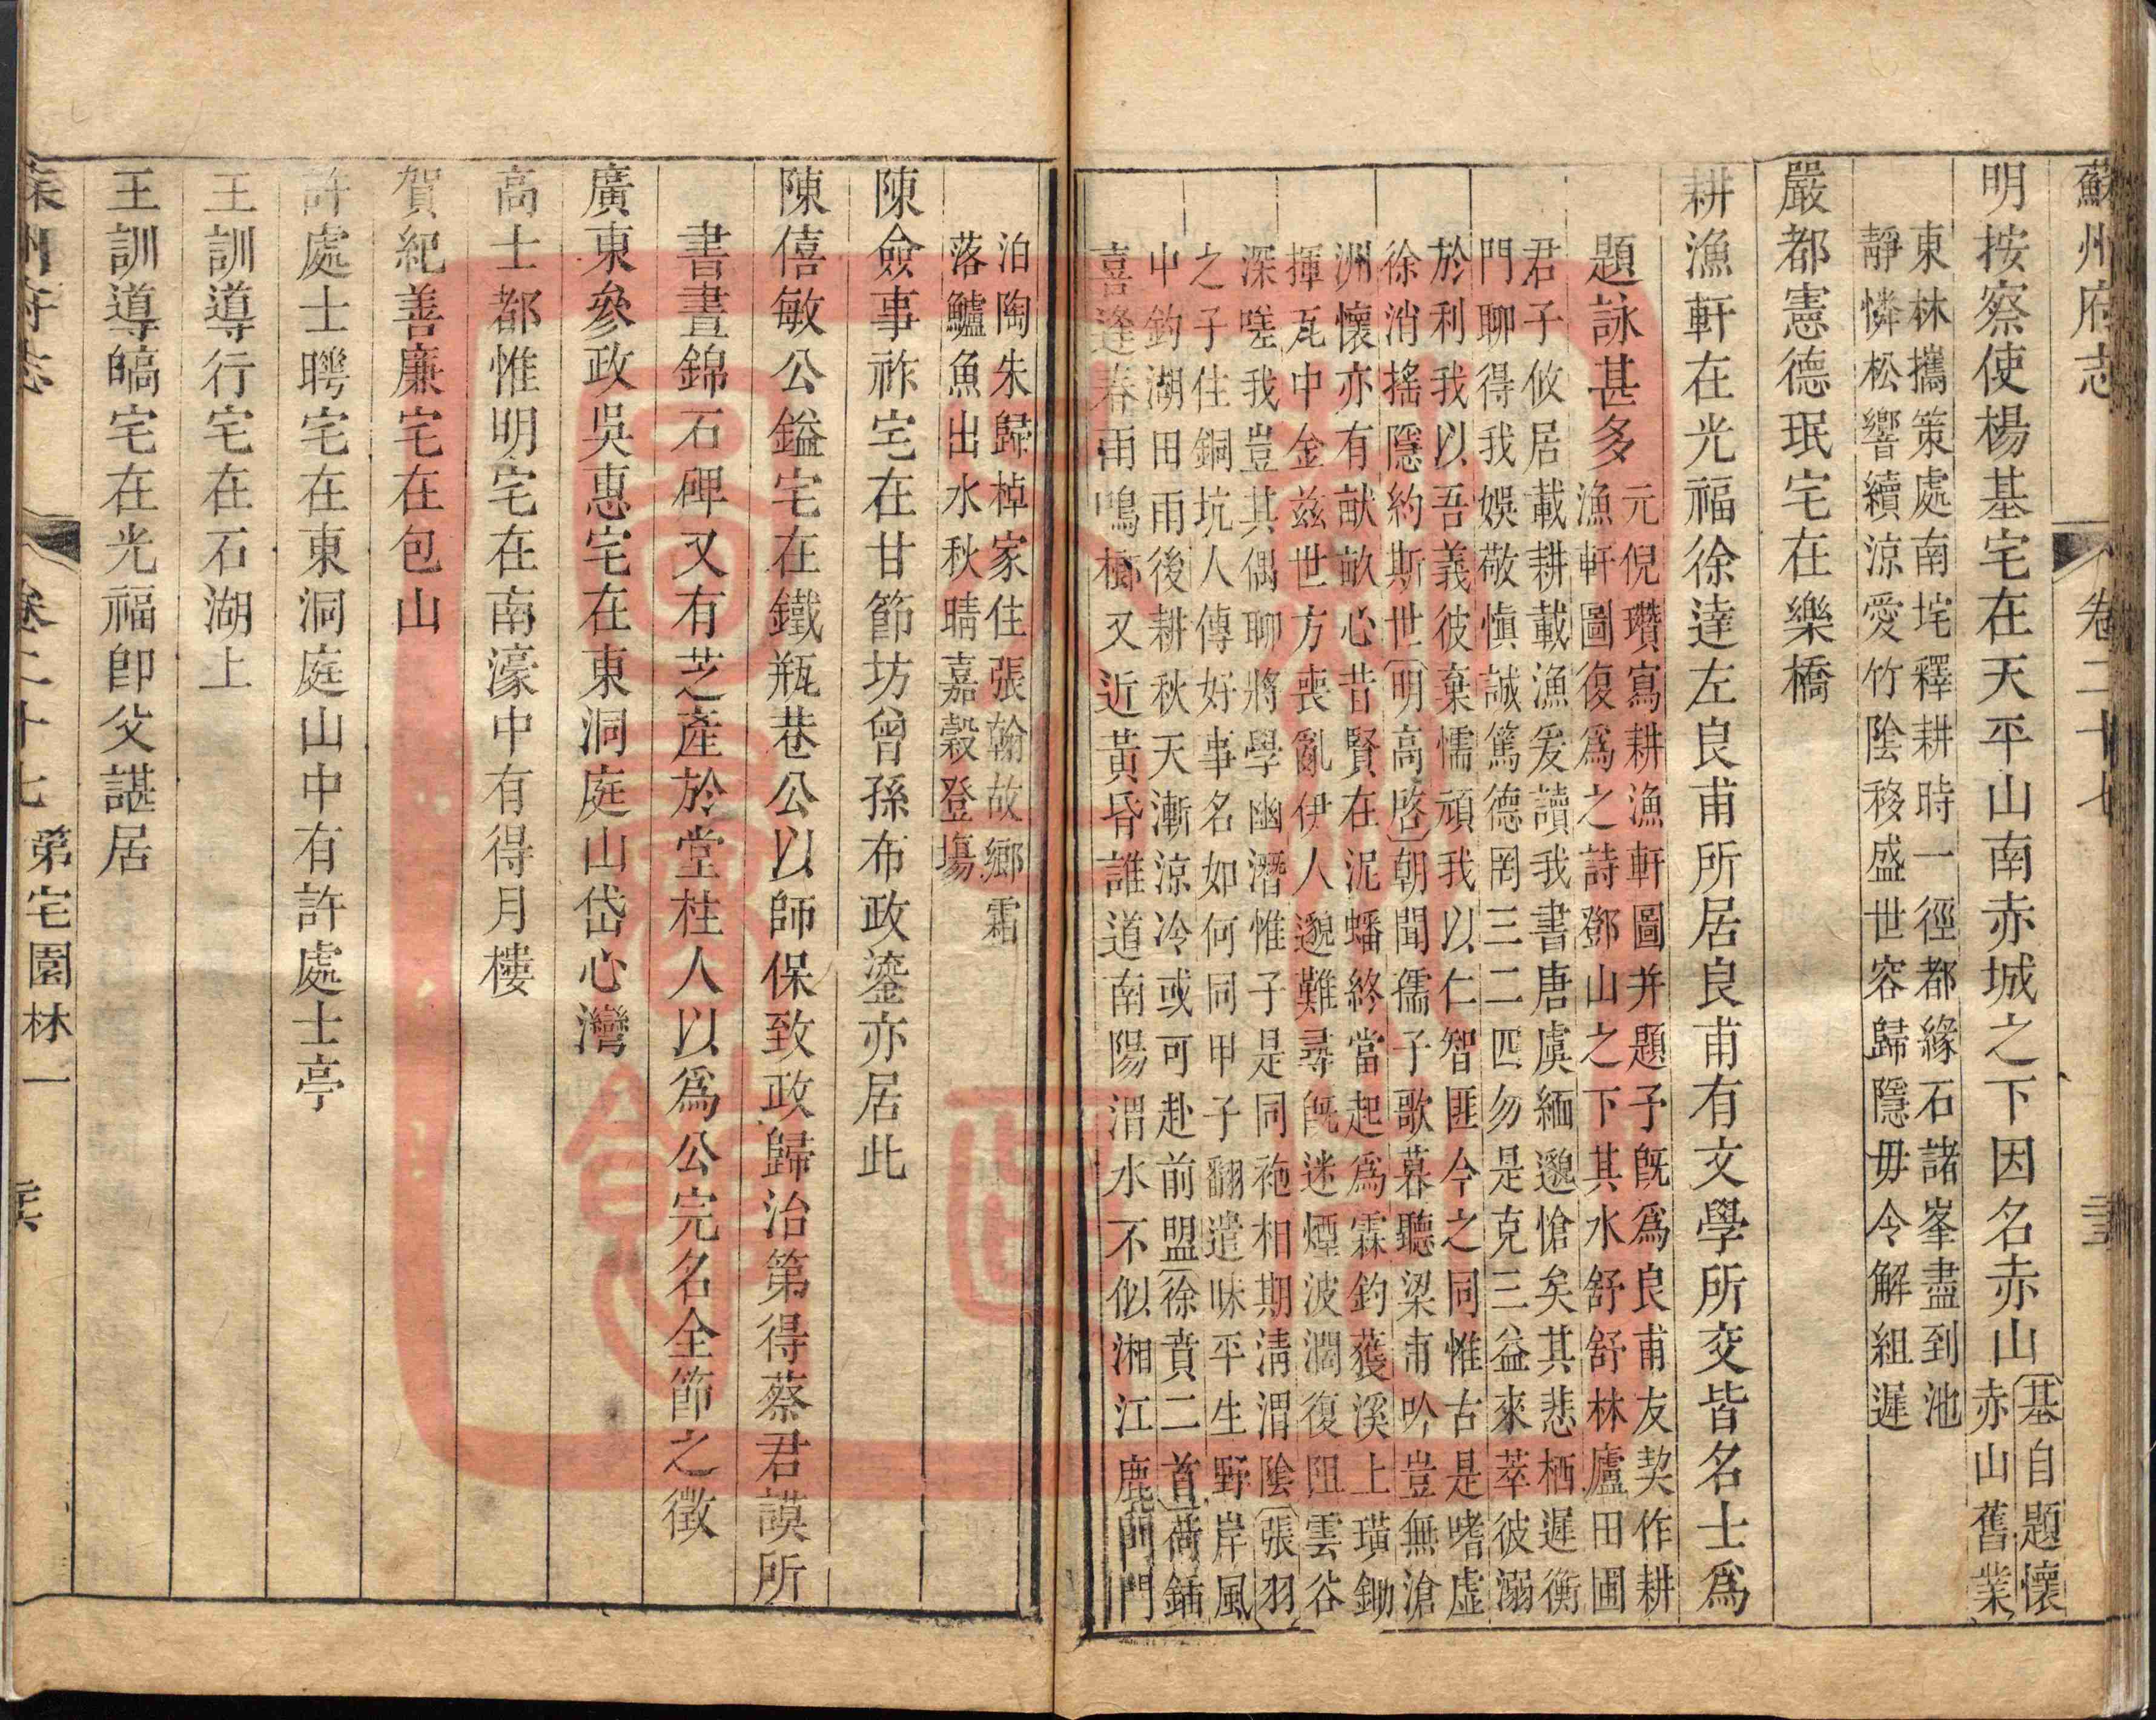 蘇州府志 卷二十七
明按察使楊基宅在天平山南赤城之下因名赤山
基自題懷
赤山舊業
東林攜策處南垞釋耕時一徑都緣石諸峯盡到池
靜憐松響續涼愛竹陰移盛世容歸隱毋令解組遲
嚴都憲德珉宅在樂橋
耕漁軒在光福徐達左良甫所居良甫有文學所交皆名士爲
題詠甚多
元倪瓚寫耕漁軒圖并題予旣爲良甫友契作耕
漁軒圖復爲之詩鄧山之下其水舒舒林廬田圃
君子攸居載耕載漁爰讀我書唐虞緬邈愴矣其悲栖遲衡
門聊得我娛敬愼誠篤德罔三二匹勿是克三益來萃彼溺
於利我以吾義彼棄懦頑我以仁智匪今之同惟古是嗜虛
徐消搖隱約斯世明高啓朝聞孺子歌暮聽梁甫吟豈無滄
洲懷亦有畎畝心昔賢在泥蟠終當起爲霖釣獲溪上璜鋤
揮瓦中金茲世方喪亂伊人邈難尋旣迷煙波濶復阻雲谷
深嗟我豈其偶聊將學幽潛惟子是同袍相期淸渭陰張羽
之子住銅坑人傳好事名如何同甲子翻遣昧平生野岸風
中釣湖田雨後耕秋天漸涼冷或可赴前盟徐賁二首荷鍤
喜逢春雨鳴榔又近黃昏誰道南陽渭水不似湘江鹿門門
泊陶朱歸棹家住張翰故鄉霜
落鱸魚出水秋晴嘉穀登塲
陳僉事祚宅在甘節坊曾孫布政鎏亦居此
陳僖敏公鎰宅在鐵瓶巷公以師保致政歸治第得蔡君謨所
書晝錦石碑又有芝產於堂柱人以爲公完名全節之徵
廣東參政吳惠宅在東洞庭山岱心灣
高士都惟明宅在南濠中有得月樓
賀紀善廉宅在包山
許處士聘宅在東洞庭山中有許處士亭
王訓導行宅在石湖上
王訓導暠宅在光福卽父諶居
卷二十七 第宅園林一